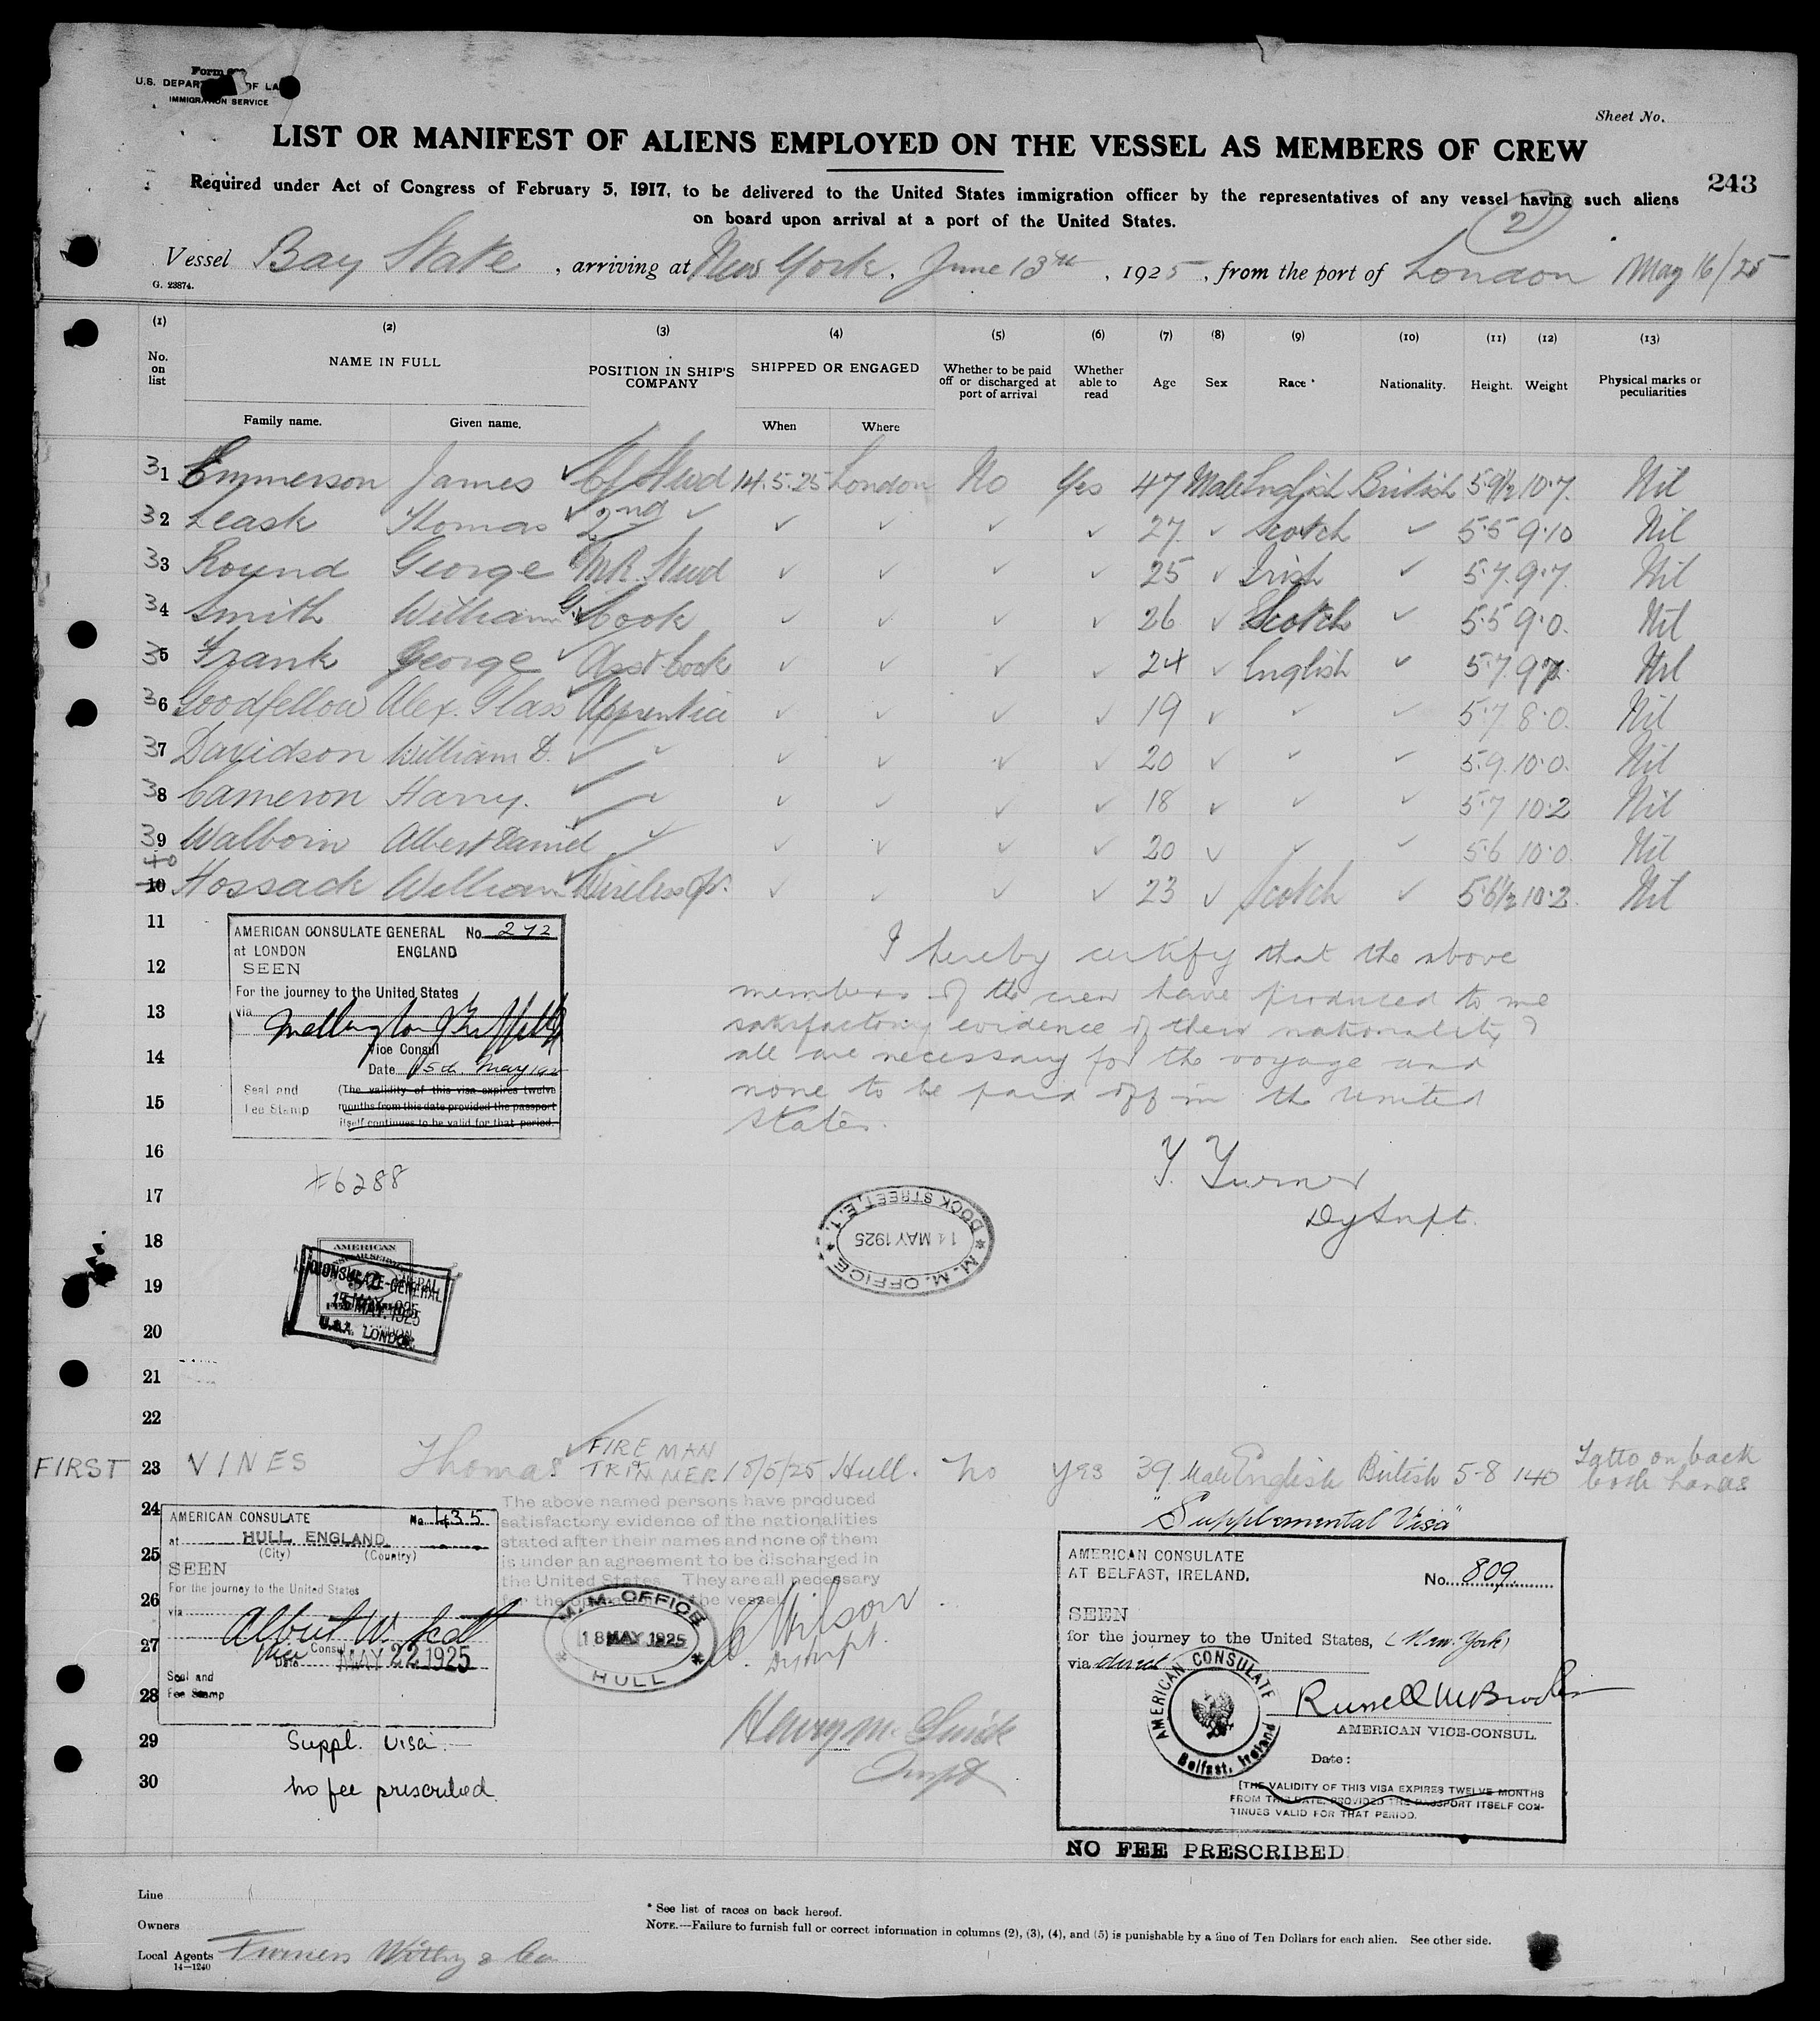 U.S. DEPARTMENT OF LABOR
IMMIGRATION SERVICE
Sheet No.
LIST OR MANIFEST OF ALIENS EMPLOYED ON THE VESSEL AS MEMBERS OF CREW
243
Required under Act of Congress of February 5, 1917, to be delivered to the United States immigration officer by the representatives of any vessel having such aliens
on board upon arrival at a port of the United States.
2
Vessel Bay State, arriving at New York, June 13th, 1925, from the port of London May 16/25
G. 23874.
(1) (2) (3) (4) (5) (6) (7) (8) (9) (10) (11) (12) (13)
No. on list NAME IN FULL POSITION IN SHIP'S COMPANY SHIPPED OR ENGAGED Whether to be paid off or discharged at port of arrival Whether able to read Age Sex Race * Nationality. Height. Weight Physical marks or peculiarities
Family name. Given name. When Where
31 Emmerson James Cf Stwd 14.5.25 London No Yes 47 Male English British 5·9½ 10·7 Nil
32 Leask Thomas 2nd ✓ ✓ ✓ ✓ ✓ 27 ✓ Scotch ✓ 5·5 9·10 Nil
33 Round George M.R. Stwd ✓ ✓ ✓ ✓ 25 ✓ Irish ✓ 5·7 9·7 Nil
34 Smith William G. Cook ✓ ✓ ✓ ✓ 26 ✓ Scotch ✓ 5·5 9·0 Nil
35 Frank George Asst Cook ✓ ✓ ✓ ✓ 24 ✓ English ✓ 5·7 9·7 Nil
36 Goodfellow Alex. Glass Apprentice ✓ ✓ ✓ ✓ 19 ✓ ✓ ✓ 5·7 8·0 Nil
37 Davidson William D. ✓ ✓ ✓ ✓ ✓ 20 ✓ ✓ ✓ 5·9 10·0 Nil
38 Cameron Harry. ✓ ✓ ✓ ✓ ✓ 18 ✓ ✓ ✓ 5·7 10·2 Nil
39 Walborn Albert Daniel ✓ ✓ ✓ ✓ ✓ 20 ✓ ✓ ✓ 5·6 10·0 Nil
40
10 Hossack William Wireless Op. ✓ ✓ ✓ ✓ 23 ✓ Scotch ✓ 5·6½ 10·2 Nil
11
AMERICAN CONSULATE GENERAL No. 272
at LONDON ENGLAND
12
SEEN
For the journey to the United States
13
via
Vice Consul
14
Date 15th May 192
Seal and Fee Stamp
(The validity of this visa expires twelve
15
months from this date provided the passport
itself continues to be valid for that period.
I hereby certify that the above
members of the crew have produced to me
satisfactory evidence of their nationality
all are necessary for the voyage and
none to be paid off in the United
States.
16
T. Turner
Dy Supt.
#6288
17
M. M. OFFICE
14 MAY 1925
DOCK STREET, E. 1.
18
AMERICAN
CONSULATE-GENERAL
19
15 MAY. 1925
U.S.A. LONDON
20
21
22
FIRST 23 VINES Thomas FIREMAN TRIMMER 18/5/25 Hull. No Yes 39 Male English British 5-8 140 Tatto on back both hands
24
AMERICAN CONSULATE No. 435
at HULL, ENGLAND.
(City) (Country)
25
SEEN
For the journey to the United States
26
via
Albert W. Scott
27
Vice Consul
Date MAY 22 1925
Seal and
Fee Stamp
28
The above named persons have produced
satisfactory evidence of the nationalities
stated after their names and none of them
is under an agreement to be discharged in
the United States. They are all necessary
for the operation of the vessel
M. M. OFFICE
18 MAY 1925
HULL
Wilson
Dy Supt.
Supt
29
Suppl. Visa.
30
No fee prescribed
"Supplemental Visa"
AMERICAN CONSULATE
AT BELFAST, IRELAND.
No. 809
SEEN
for the journey to the United States, (New York)
via direct
AMERICAN CONSULATE
Belfast, Ireland
AMERICAN VICE-CONSUL.
Date:
[THE VALIDITY OF THIS VISA EXPIRES TWELVE MONTHS
FROM THIS DATE, PROVIDED THE PASSPORT ITSELF CON-
TINUES VALID FOR THAT PERIOD.
NO FEE PRESCRIBED
Line
Owners
Local Agents Furness Withy & Co
14—1240
* See list of races on back hereof.
NOTE.—Failure to furnish full or correct information in columns (2), (3), (4), and (5) is punishable by a fine of Ten Dollars for each alien. See other side.